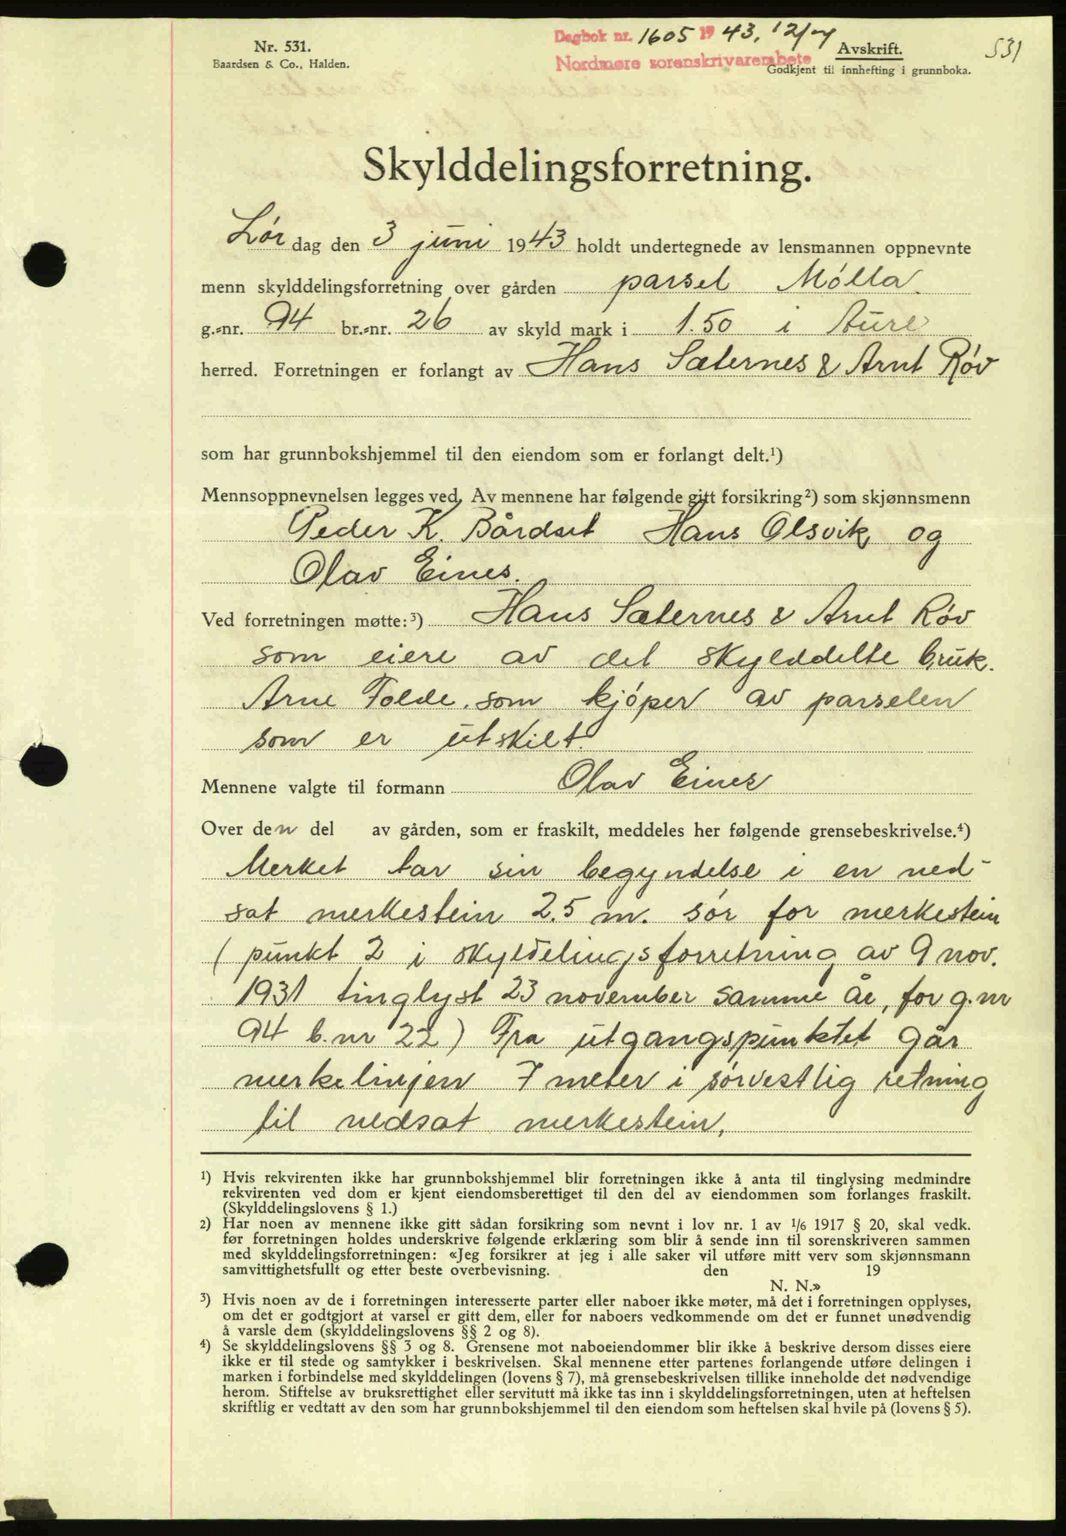 Nr. 531.
Baardsen & Co., Halden.
Dagbok nr. 1605 1943, 12/7
Nordmøre sorenskrivarembete
Avskrift.
Godkjent til innhefting i grunnboka.
531
Skylddelingsforretning.
Lør dag den 3 juni 1943 holdt undertegnede av lensmannen oppnevnte
menn skylddelingsforretning over gården parsel Mølla.
g.-nr. 94 br.-nr. 26 av skyld mark i 1.50 i Aure
herred. Forretningen er forlangt av Hans Sæternes & Arnt Røv
som har grunnbokshjemmel til den eiendom som er forlangt delt.¹)
Mennsoppnevnelsen legges ved. Av mennene har følgende gitt forsikring²) som skjønnsmenn
Peder K. Bårdset Hans Olsvik og
Olav Eines.
Ved forretningen møtte:³) Hans Sæternes & Arnt Røv
som eiere av det skylddelte bruk.
Arne Folde. som kjøper av parselen
som er utskilt.
Mennene valgte til formann Olav Eines
Over den del av gården, som er fraskilt, meddeles her følgende grensebeskrivelse.⁴)
Merket tar sin begyndelse i en ned-
sat merkestein 2.5 m. sør for merkestein
( punkt 2 i skyldelingsforretning av 9 nov.
1931 tinglyst 23 november samme år, for g.nr
94 b.nr 22) Fra utgangspunktet går
merkelinjen 7 meter i sørvestlig retning
til nedsat merkestein.
¹) Hvis rekvirenten ikke har grunnbokshjemmel blir forretningen ikke å anta til tinglysing medmindre
rekvirenten ved dom er kjent eiendomsberettiget til den del av eiendommen som forlanges fraskilt.
(Skylddelingslovens § 1.)
²) Har noen av mennene ikke gitt sådan forsikring som nevnt i lov nr. 1 av 1/6 1917 § 20, skal vedk.
før forretningen holdes underskrive følgende erklæring som blir å sende inn til sorenskriveren sammen
med skylddelingsforretningen: «Jeg forsikrer at jeg i alle saker vil utføre mitt verv som skjønnsmann
samvittighetsfullt og etter beste overbevisning. den 19
N. N.»
³) Hvis noen av de i forretningen interesserte parter eller naboer ikke møter, må det i forretningen opplyses,
om det er godtgjort at varsel er gitt dem, eller for naboers vedkommende om det er funnet unødvendig
å varsle dem (skylddelingslovens §§ 2 og 8).
⁴) Se skylddelingslovens §§ 3 og 8. Grensene mot naboeiendommer blir ikke å beskrive dersom disses eiere
ikke er til stede og samtykker i beskrivelsen. Skal mennene etter partenes forlangende utføre delingen i
marken i forbindelse med skylddelingen (lovens § 7), må grensebeskrivelsen tillike inneholde det nødvendige
herom. Stiftelse av bruksrettighet eller servitutt må ikke tas inn i skylddelingsforretningen, uten at heftelsen
skriftlig er vedtatt av den som har grunnbokshjemmel til den eiendom som heftelsen skal hvile på (lovens § 5).